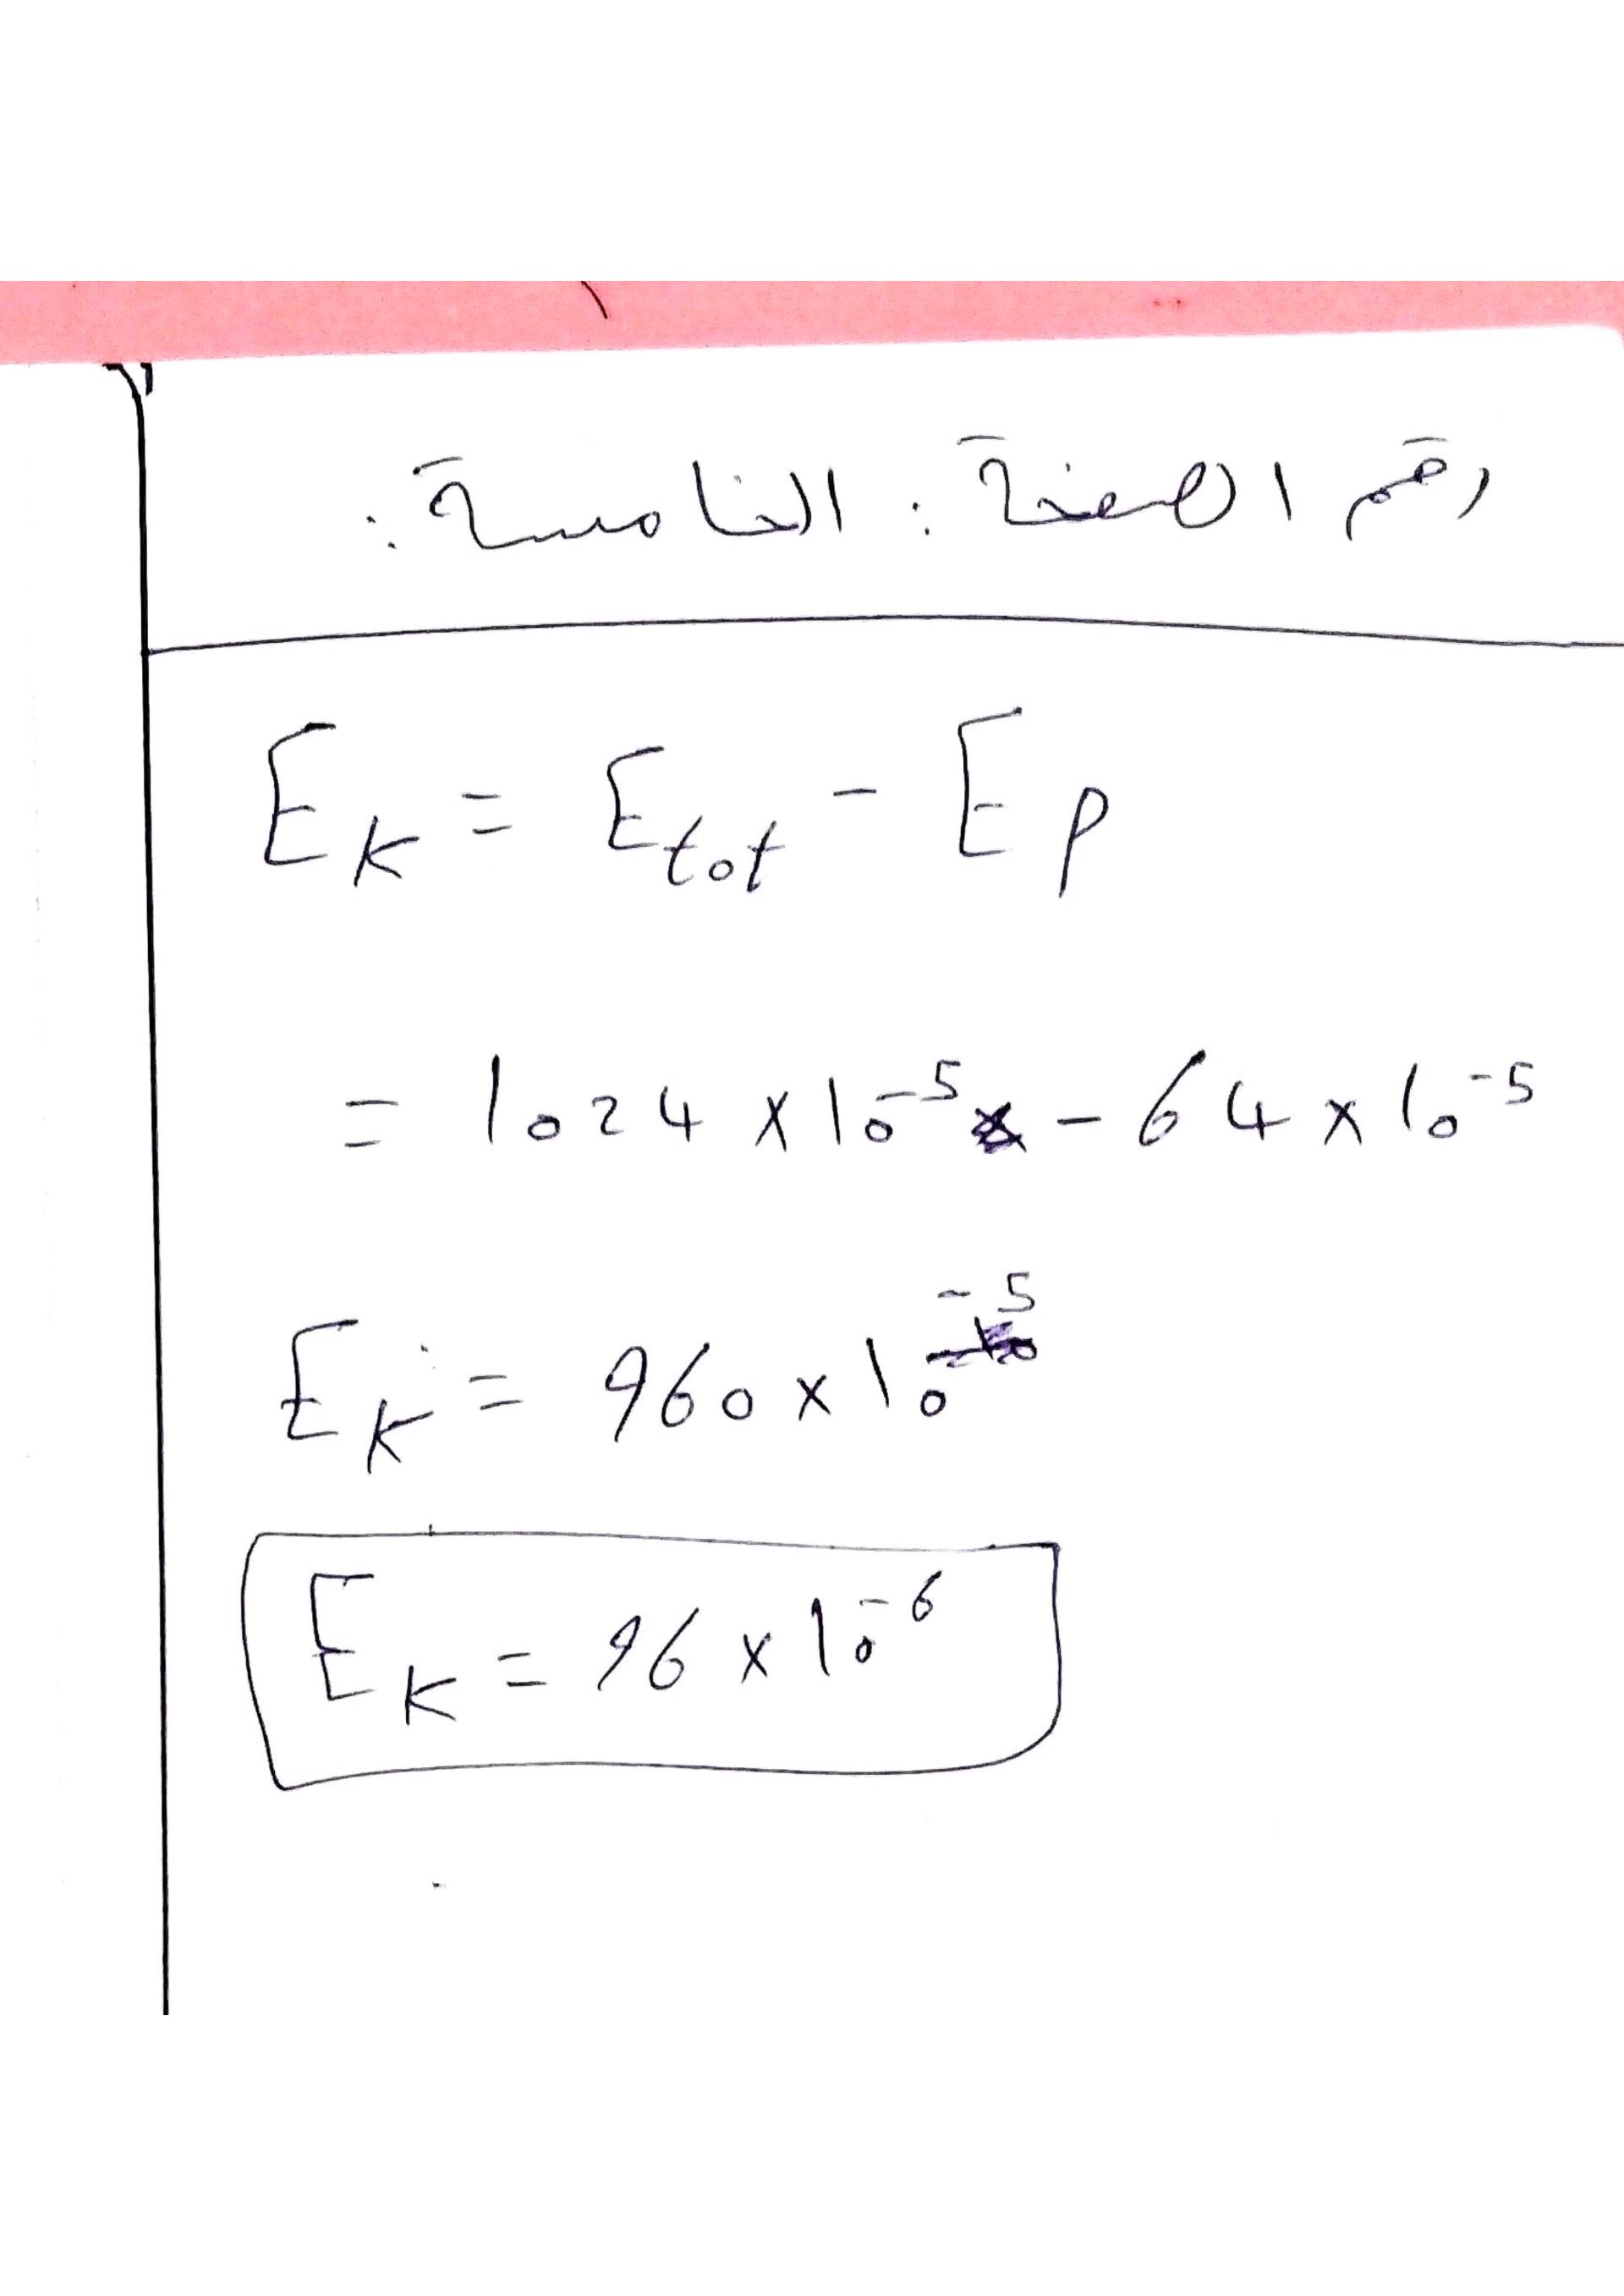 رقم الصفحة: الخامسة.
E_K = E_tot - E_P
= 1024 × 10^-5 - 64 × 10^-5
E_K = 960 × 10^-5
E_K = 96 × 10^-6